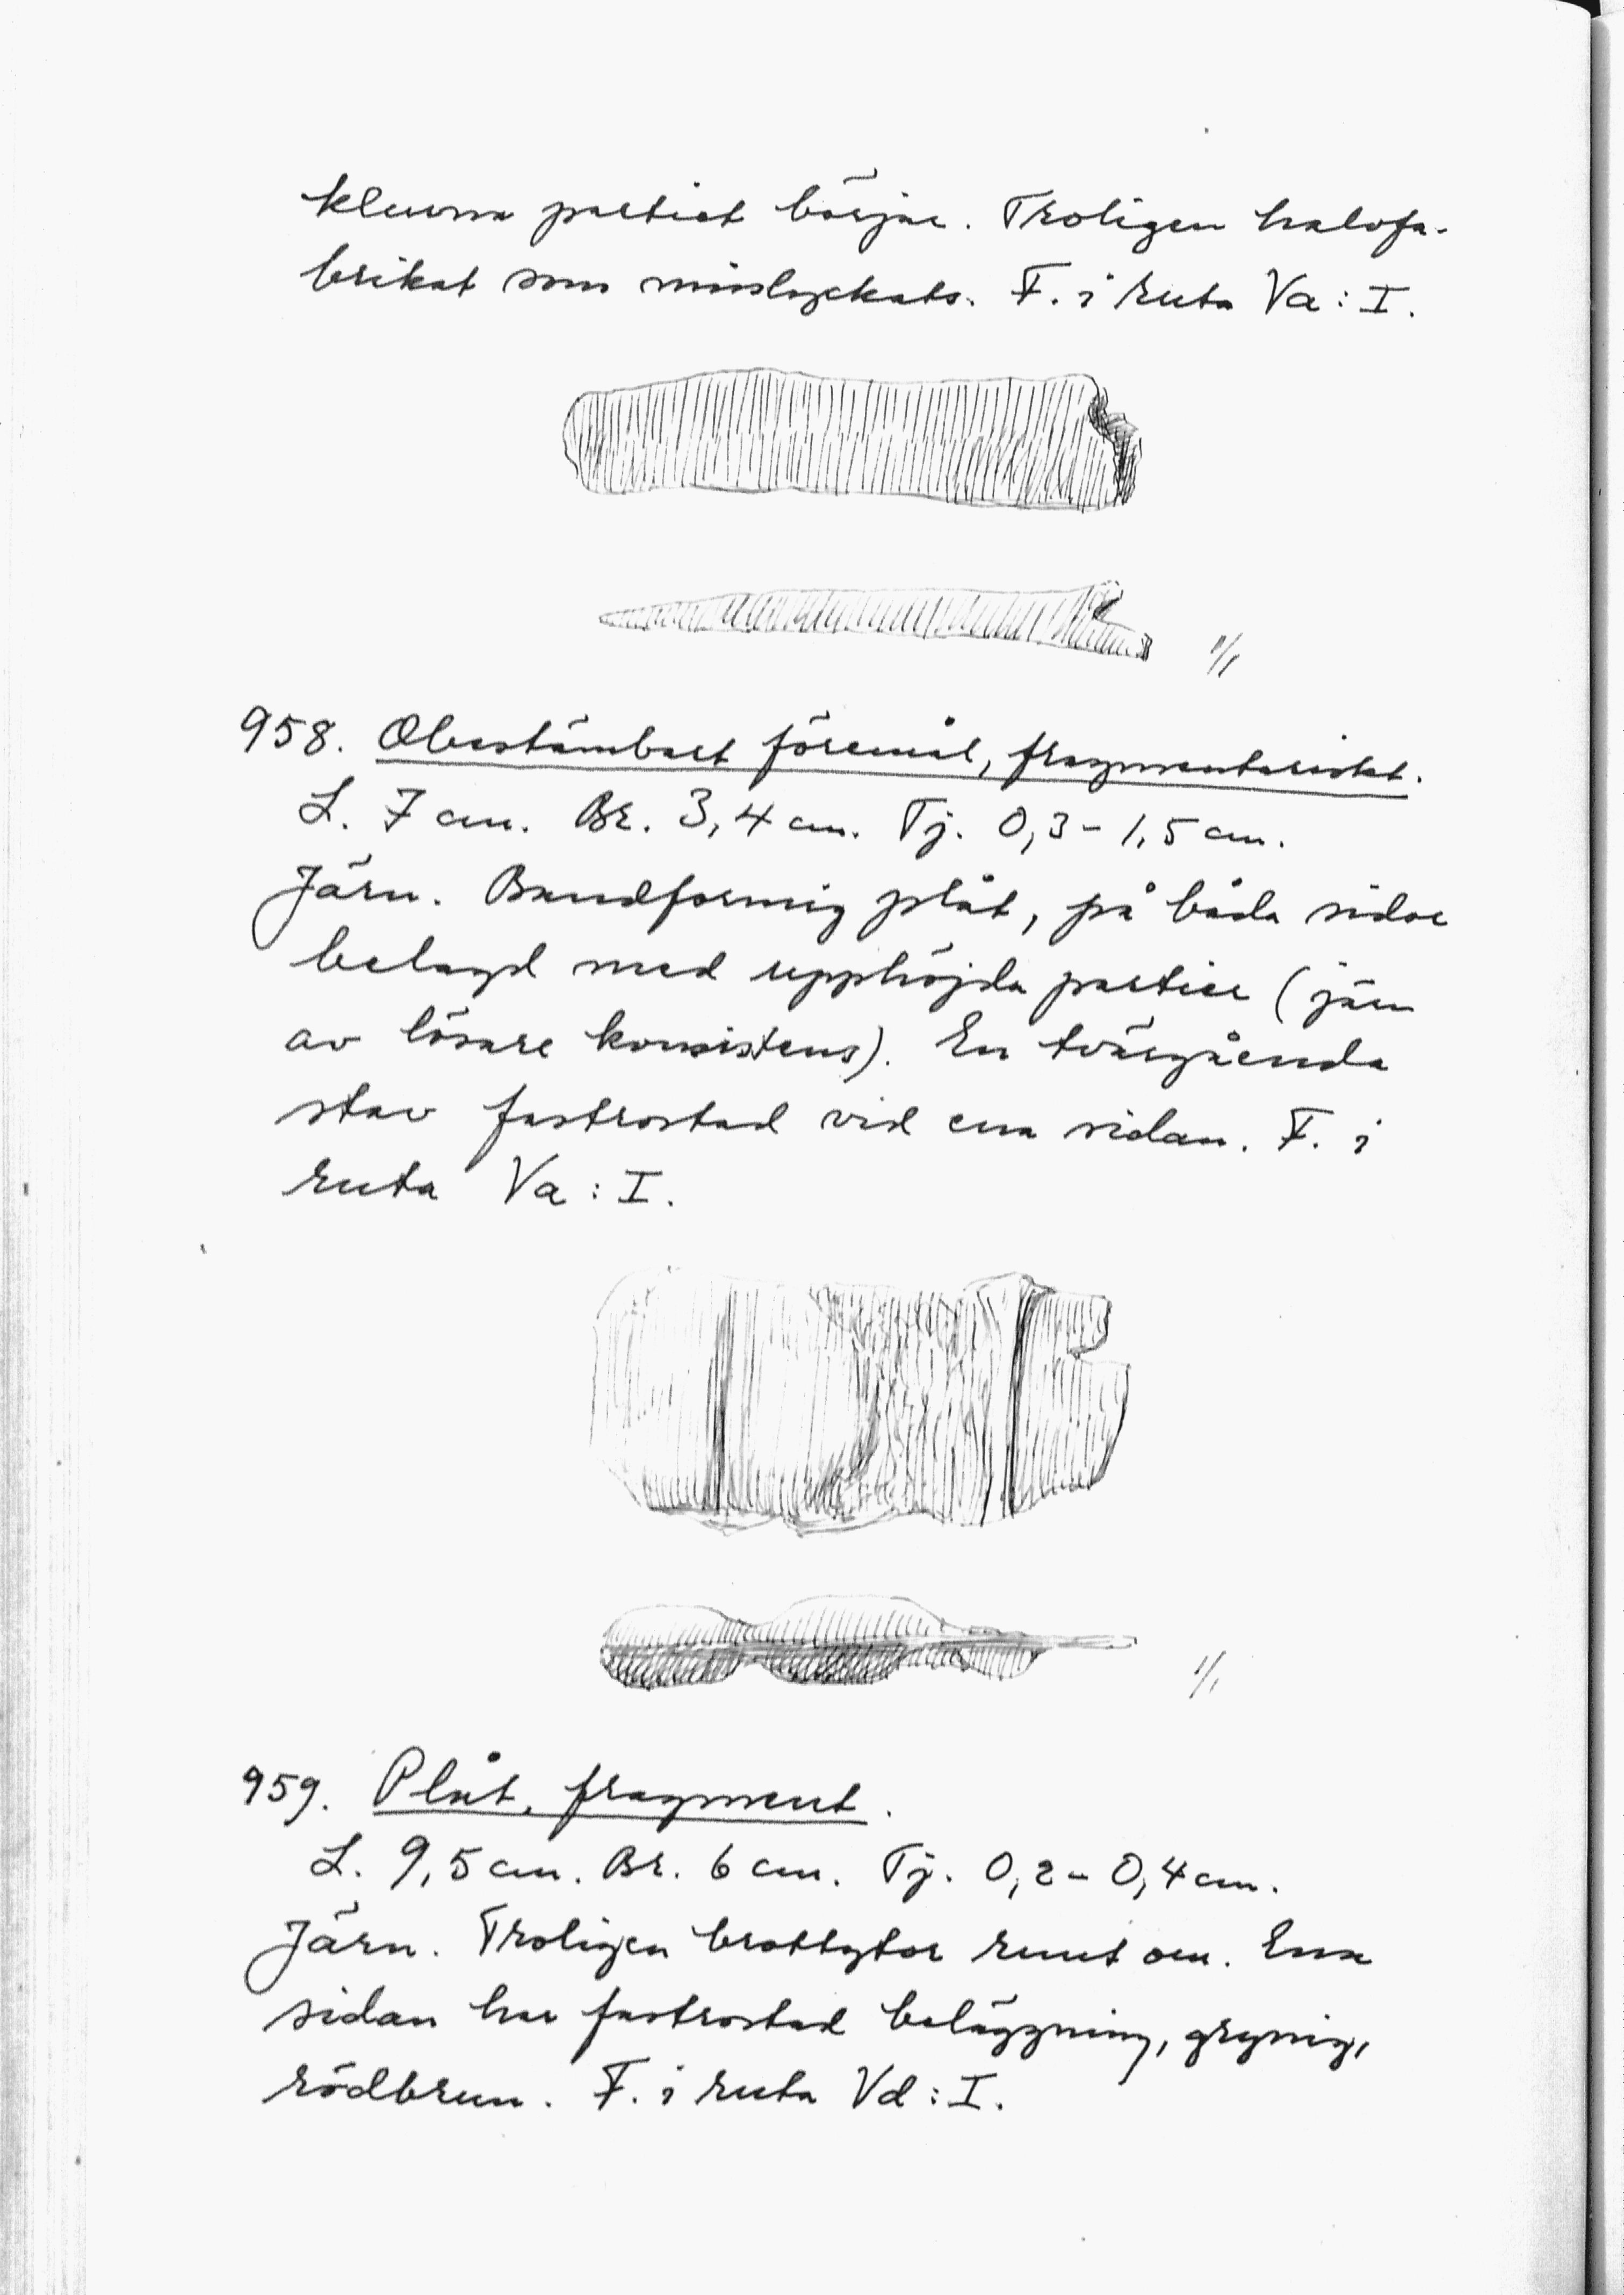 kluvna partiet börjar. Troligen halvfa-
brikat som misslyckats. F. i ruta Va : I.
1/1
958. Obestämbart föremål, fragmentariskt.
L. 7 cm. Br. 3,4 cm. Tj. 0,3 - 1,5 cm.
Järn. Bandformig plåt, på båda sidor
belagd med upphöjda partier (järn
av lösare konsistens). En tvärgående
stav fastrostad vid ena sidan. F. i
ruta Va : I.
1/1
959. Plåt, fragment.
L. 9,5 cm. Br. 6 cm. Tj. 0,2 - 0,4 cm.
Järn. Troligen brottytor runt om. Ena
sidan har fastrostad beläggning, grynig,
rödbrun. F. i ruta Vd : I.